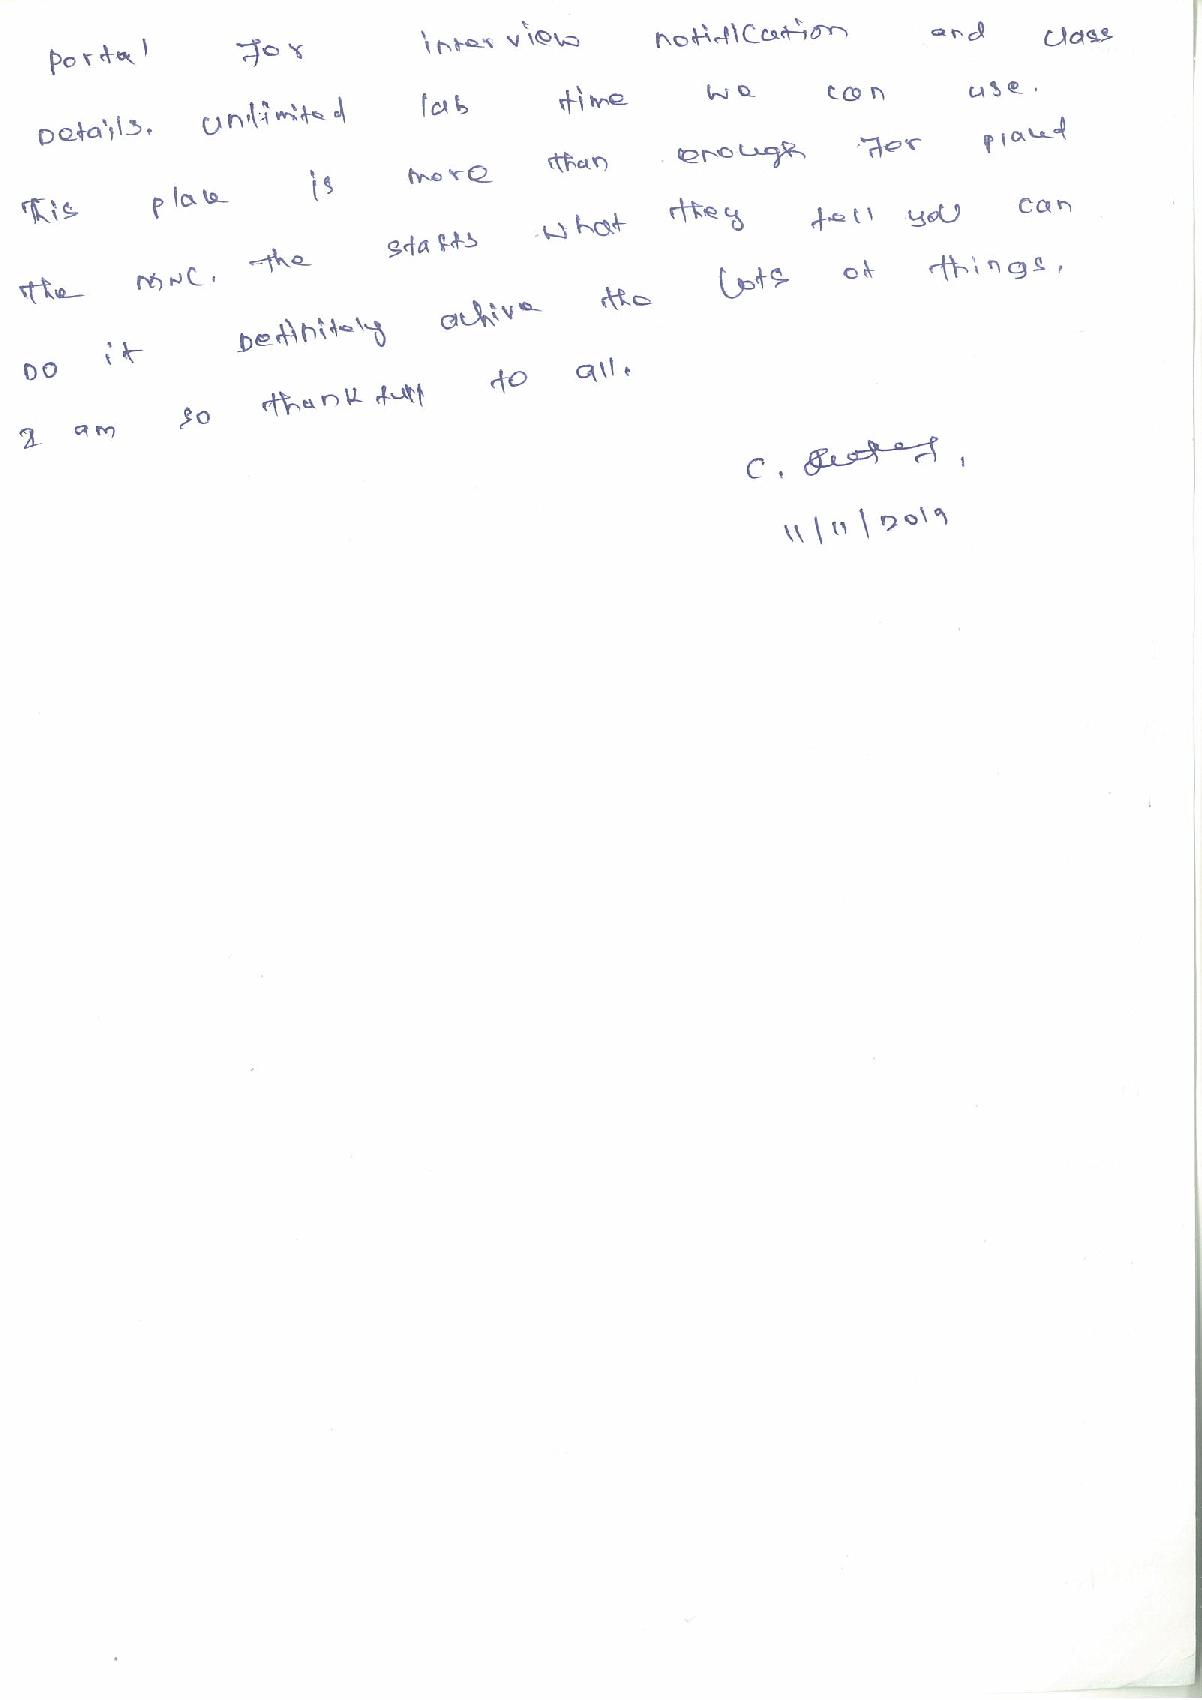 Portal For interview notification and class
Details. unlimited lab time we can use.
This place is more than enough For placed
the MNC. The staffs what they tell you can
DO it Definitely achive the lots of things.
I am so thankfull to all.
C.
11/11/2019